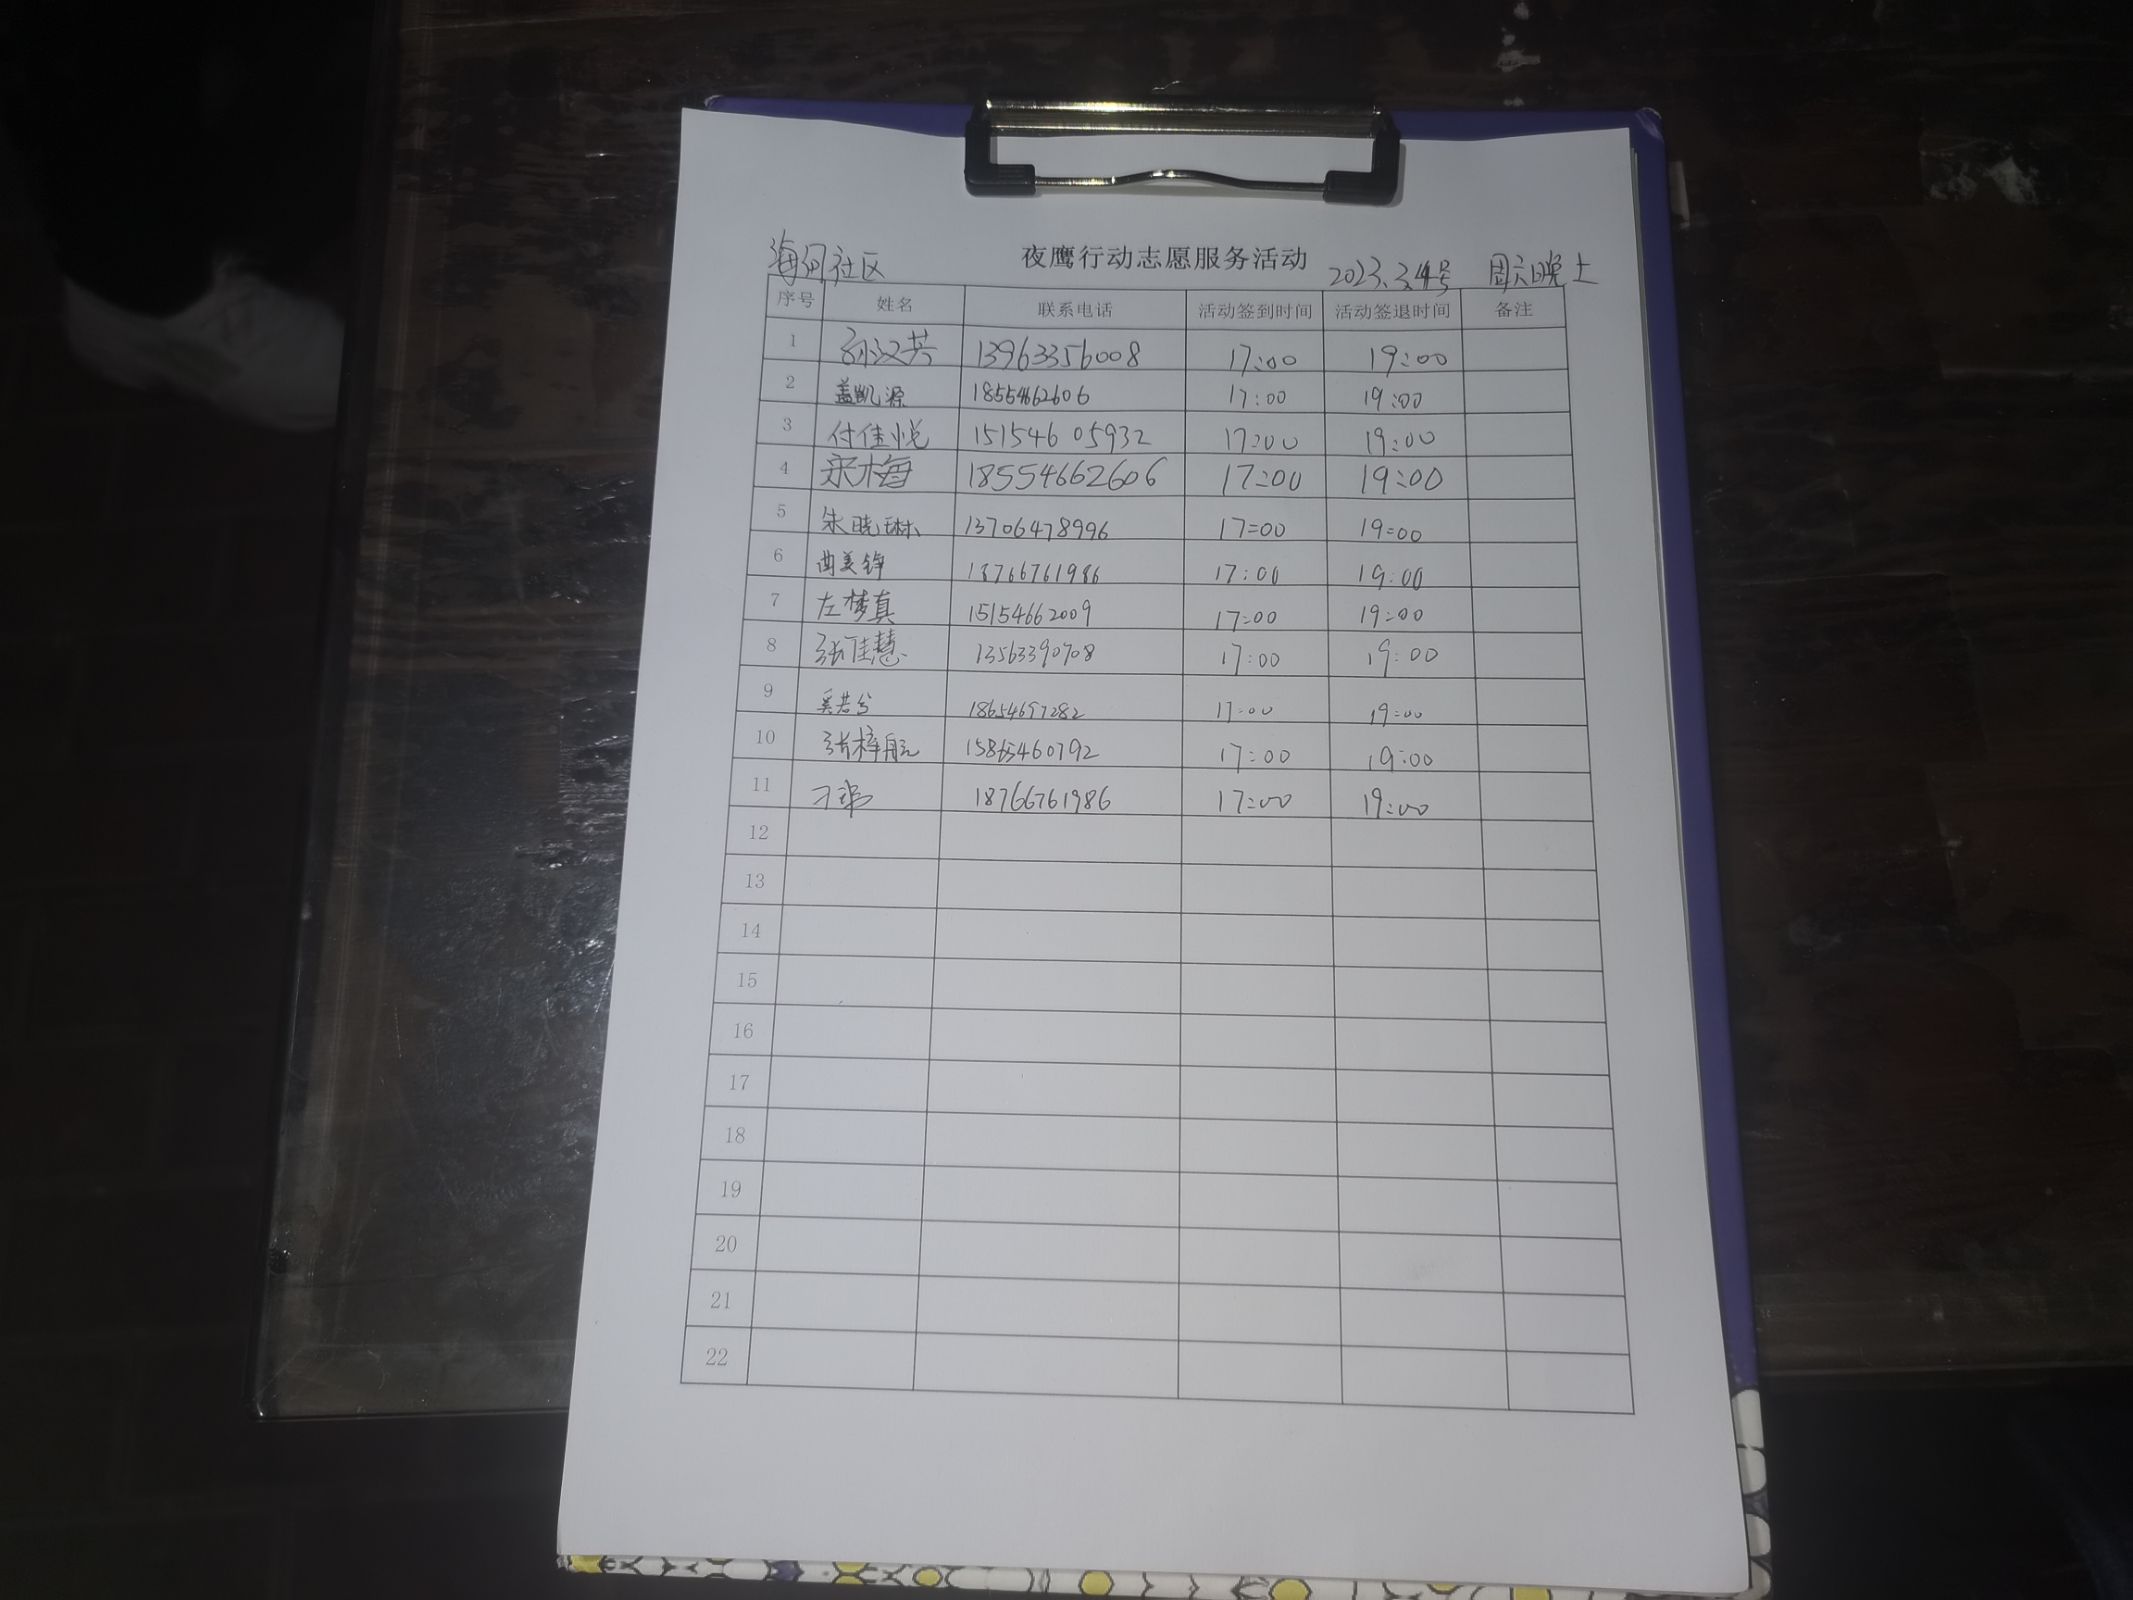 海河社区 夜鹰行动志愿服务活动 2023.3.4号 周六晚上
序号 姓名 联系电话 活动签到时间 活动签退时间 备注
1 孙汉芸 13963356008 17:00 19:00
2 盖凯源 18554662606 17:00 19:00
3 付佳悦 15154605932 17:00 19:00
4 宋梅 18554662606 17:00 19:00
5 朱晓琳 13706478996 17:00 19:00
6 曲美铮 18766761986 17:00 19:00
7 左梦真 15154662009 17:00 19:00
8 张佳慧 13563390708 17:00 19:00
9 奚若兮 18654697282 17:00 19:00
10 张梓航 15865460792 17:00 19:00
11 18766761986 17:00 19:00
12
13
14
15
16
17
18
19
20
21
22